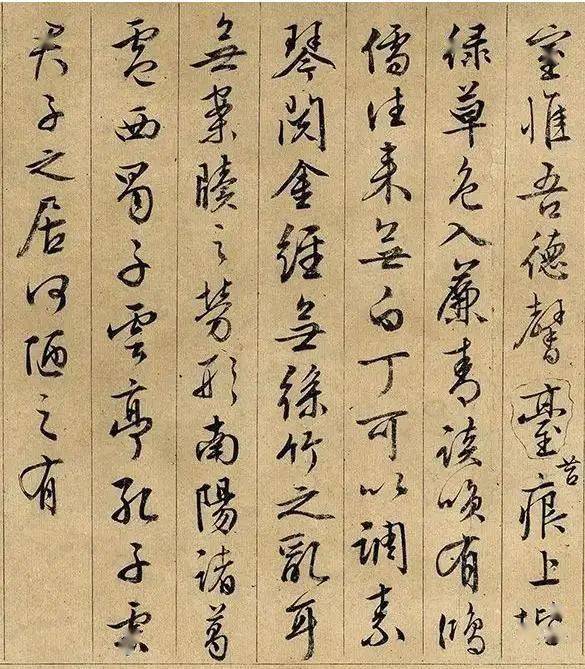 室惟吾德馨臺苔痕上堦
綠草色入簾青談咲有鴻
儒往来無白丁可以調素
琴閱金經無絲竹之亂耳
無案牘之勞形南陽諸葛
廬西蜀子雲亭孔子云
君子之居何陋之有